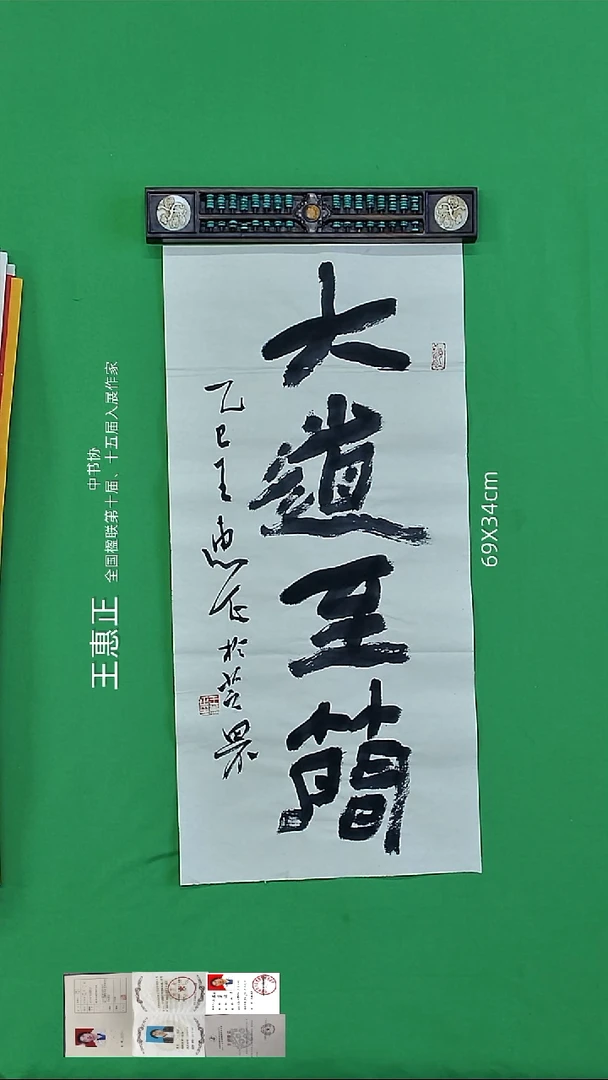 大道至簡
乙巳王惠正於
王惠正
中书协
全国楹联第十届、十五届入展作家
69X34cm